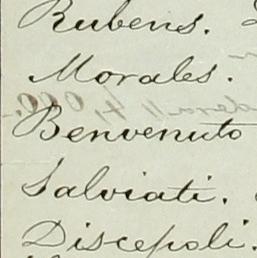 Rubens.
Morales.
Benvenuto
Salviati.
Discepoli.